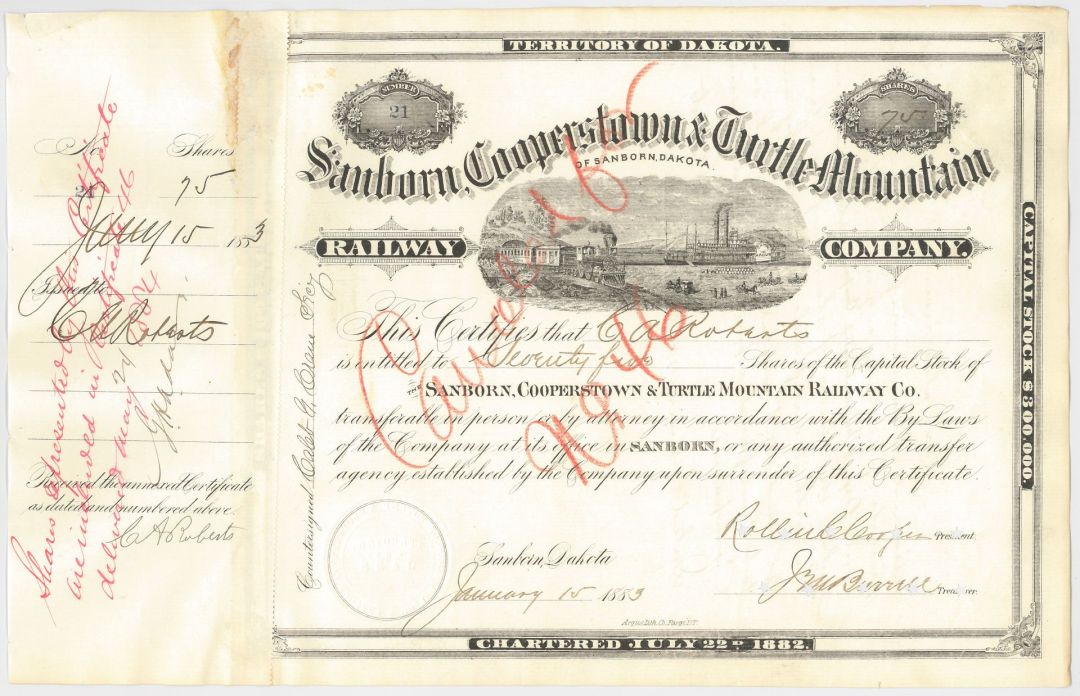 No. Shares
21 75
Jany 15 1883
Issued to
C A Roberts
Received the annexed Certificate
as dated and numbered above.
C A Roberts
Shares represented by this Certificate
are included in No. 46
delivered May 29 1884
TERRITORY OF DAKOTA.
NUMBER
21
SHARES
75
Sanborn, Cooperstown & Turtle Mountain
OF SANBORN, DAKOTA.
RAILWAY COMPANY.
This Certifies that C A Roberts
is entitled to Seventy five Shares of the Capital Stock of
THE SANBORN, COOPERSTOWN & TURTLE MOUNTAIN RAILWAY CO.
transferable in person or by attorney in accordance with the By Laws
of the Company at its office in SANBORN, or any authorized transfer
agency established by the Company upon surrender of this Certificate.
Rollin C Cooper President.
Sanborn, Dakota
January 15 1883
J M Burrell Treasurer.
Argus Lith. Co. Fargo D.T.
CHARTERED JULY 22D 1882.
CAPITAL STOCK $800,000.
Countersigned
Cancelled
No 46